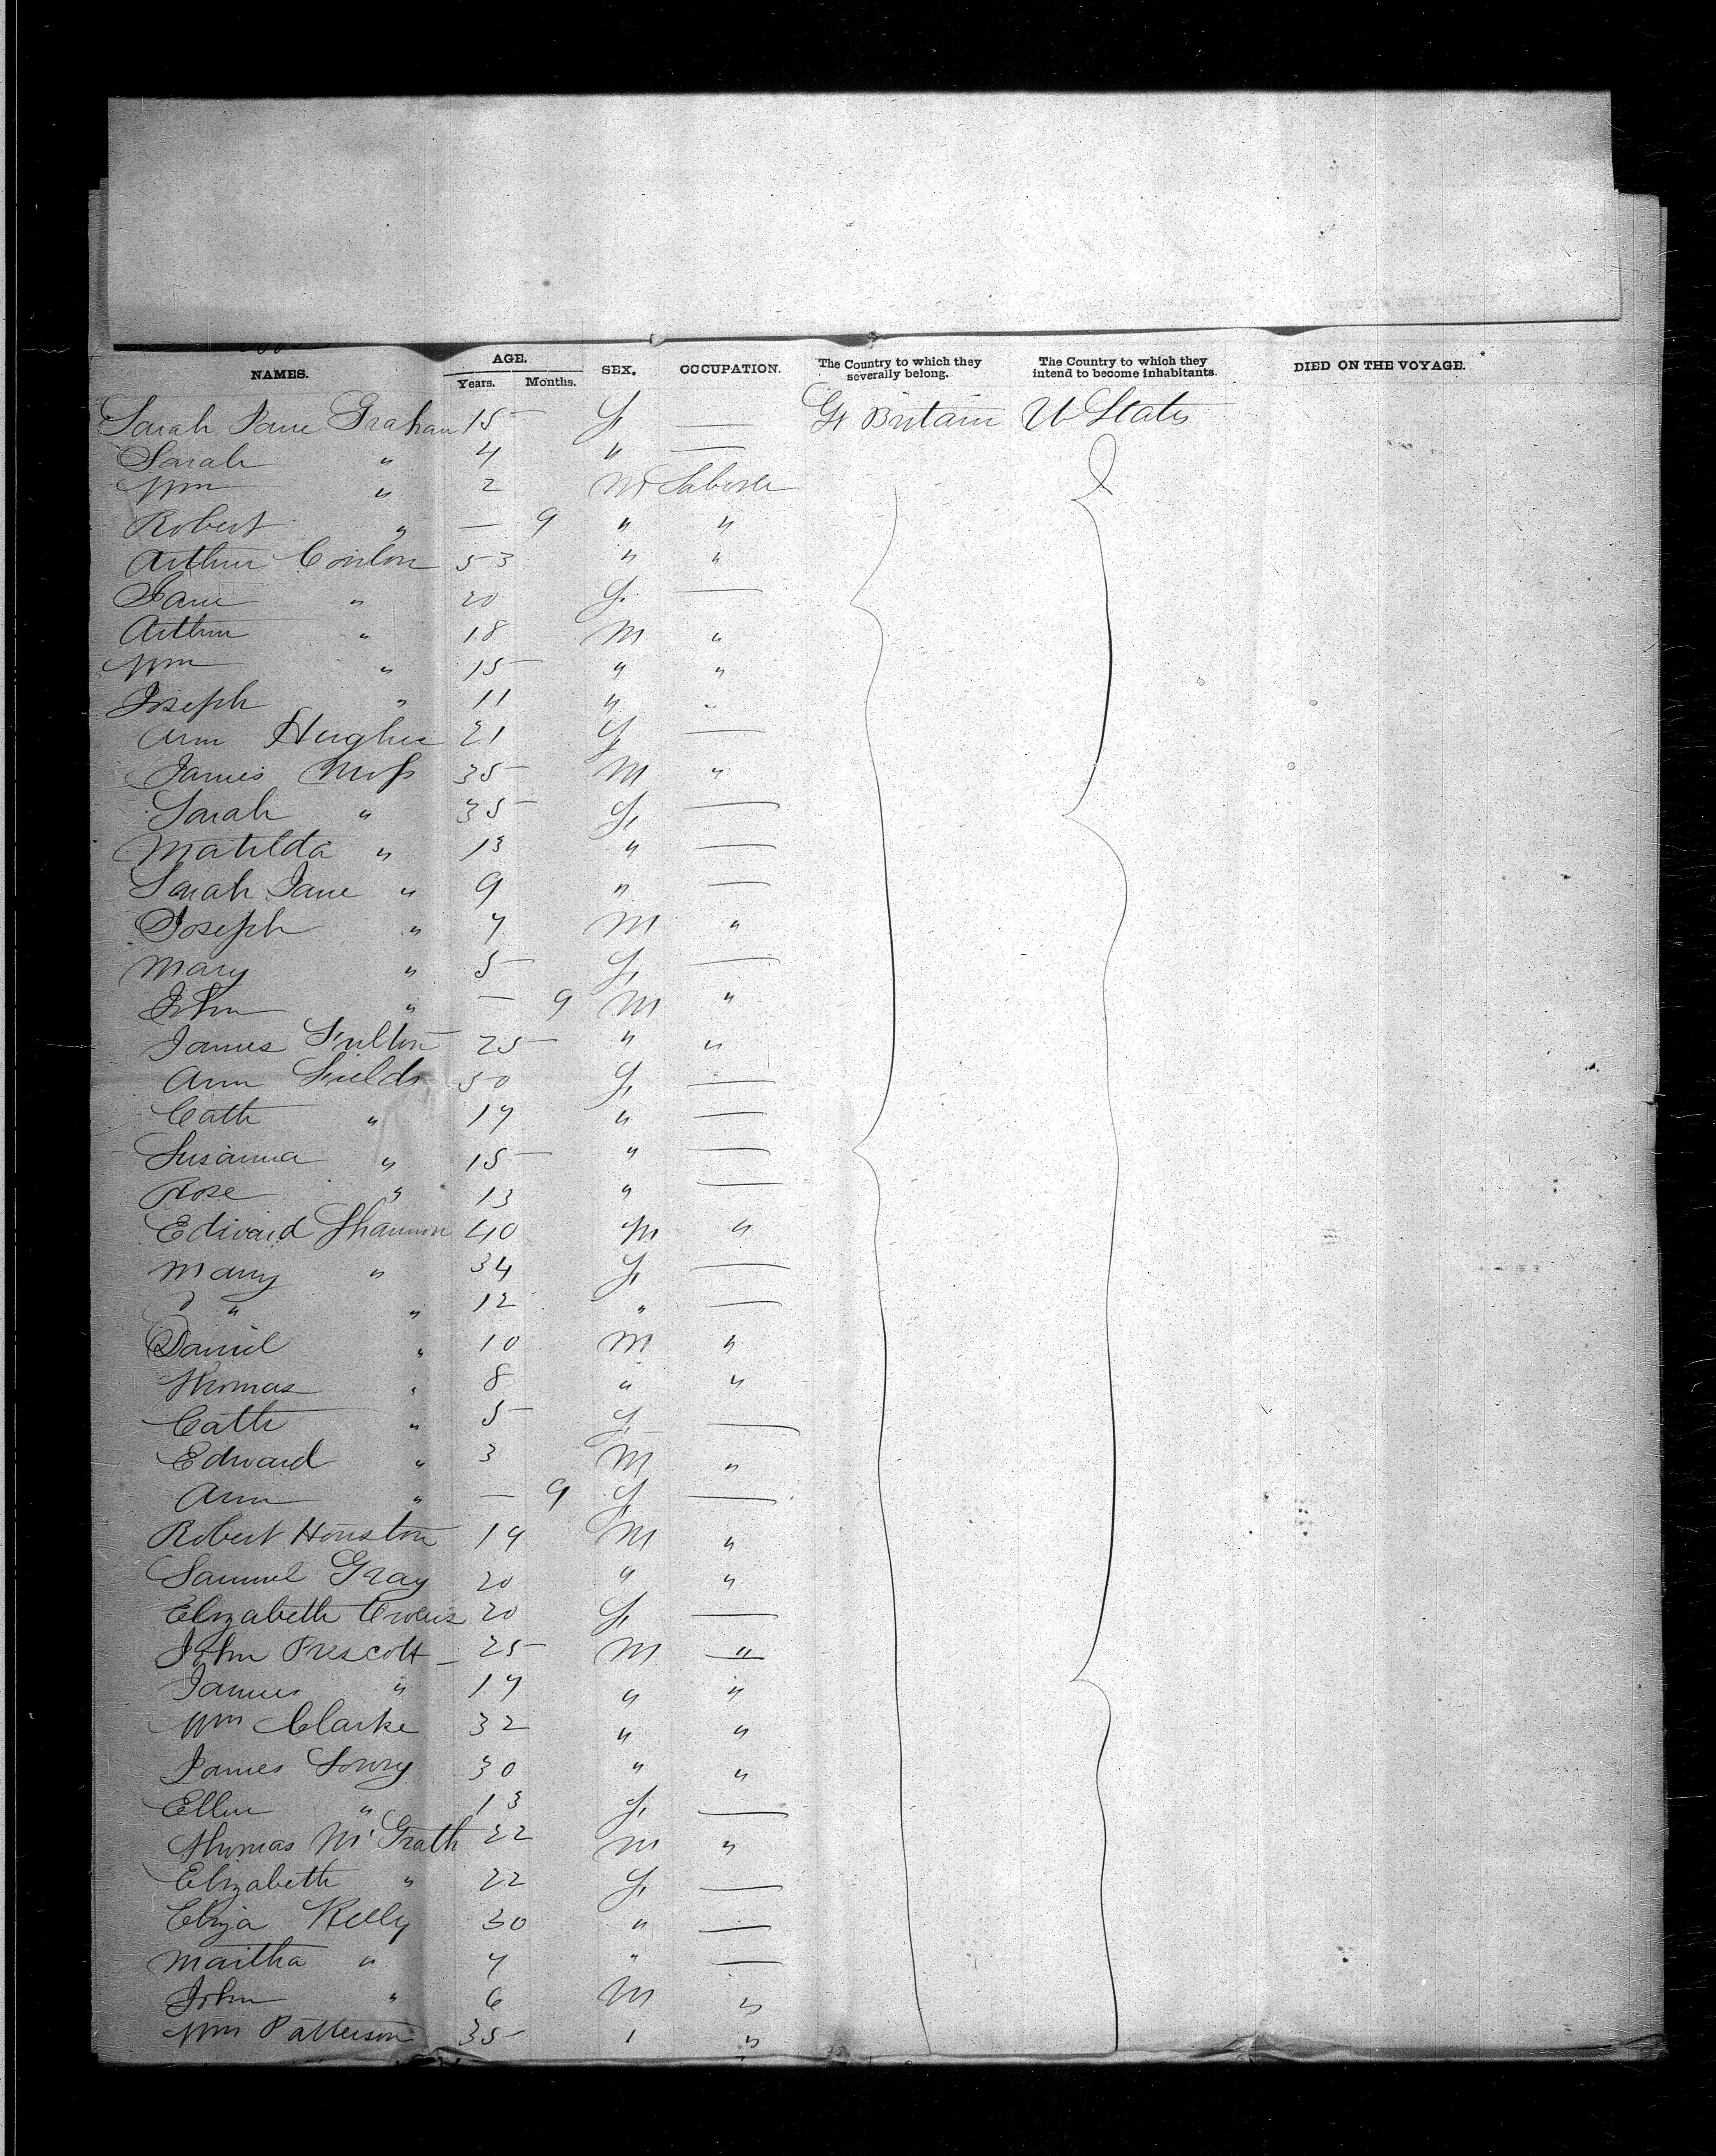 NAMES. AGE. Years. Months. SEX. OCCUPATION. The Country to which they severally belong. The Country to which they intend to become inhabitants. DIED ON THE VOYAGE.
Sarah Jane Graham 15 F — Gt Britain U States
Sarah " 4 " —
Wm " 2 M Laborer
Robert " — 9 " "
Arthur Conlon 53 " "
Jane " 20 F. —
Arthur " 18 M "
Wm " 15 " "
Joseph " 11 " "
Ann Hughes 21 F —
James 35 M "
Sarah " 35 F, —
Matilda " 13 " —
Sarah Jane " 9 " —
Joseph " 7 M "
Mary " 5 F, —
John " — 9 M "
James Fulton 25 " "
Ann Fields 50 F, —
Cath " 17 " —
Susanna " 15 " —
Rose " 13 " —
Edward Shannon 40 M "
Mary " 34 F, —
" " 12 " —
Daniel " 10 M "
Thomas " 8 " "
Cath " 5 F —
Edward " 3 M "
Ann " — 9 F —
Robert Houston 19 M "
Samuel Gray 20 " "
Elizabeth Owens 20 F, —
John Prescott — 25 M "
James " 17 " "
Wm Clarke 32 " "
James Lowry 30 " "
Ellen " 13 F, —
Thomas McGrath 22 M "
Elizabeth " 22 F, —
Eliza Kelly 30 " —
Martha " 7 " —
John " 6 M "
Wm Patterson 35 " "